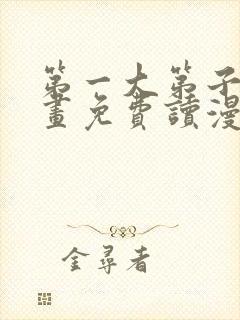 第一大弟子
畫免費讀漫
金尋者